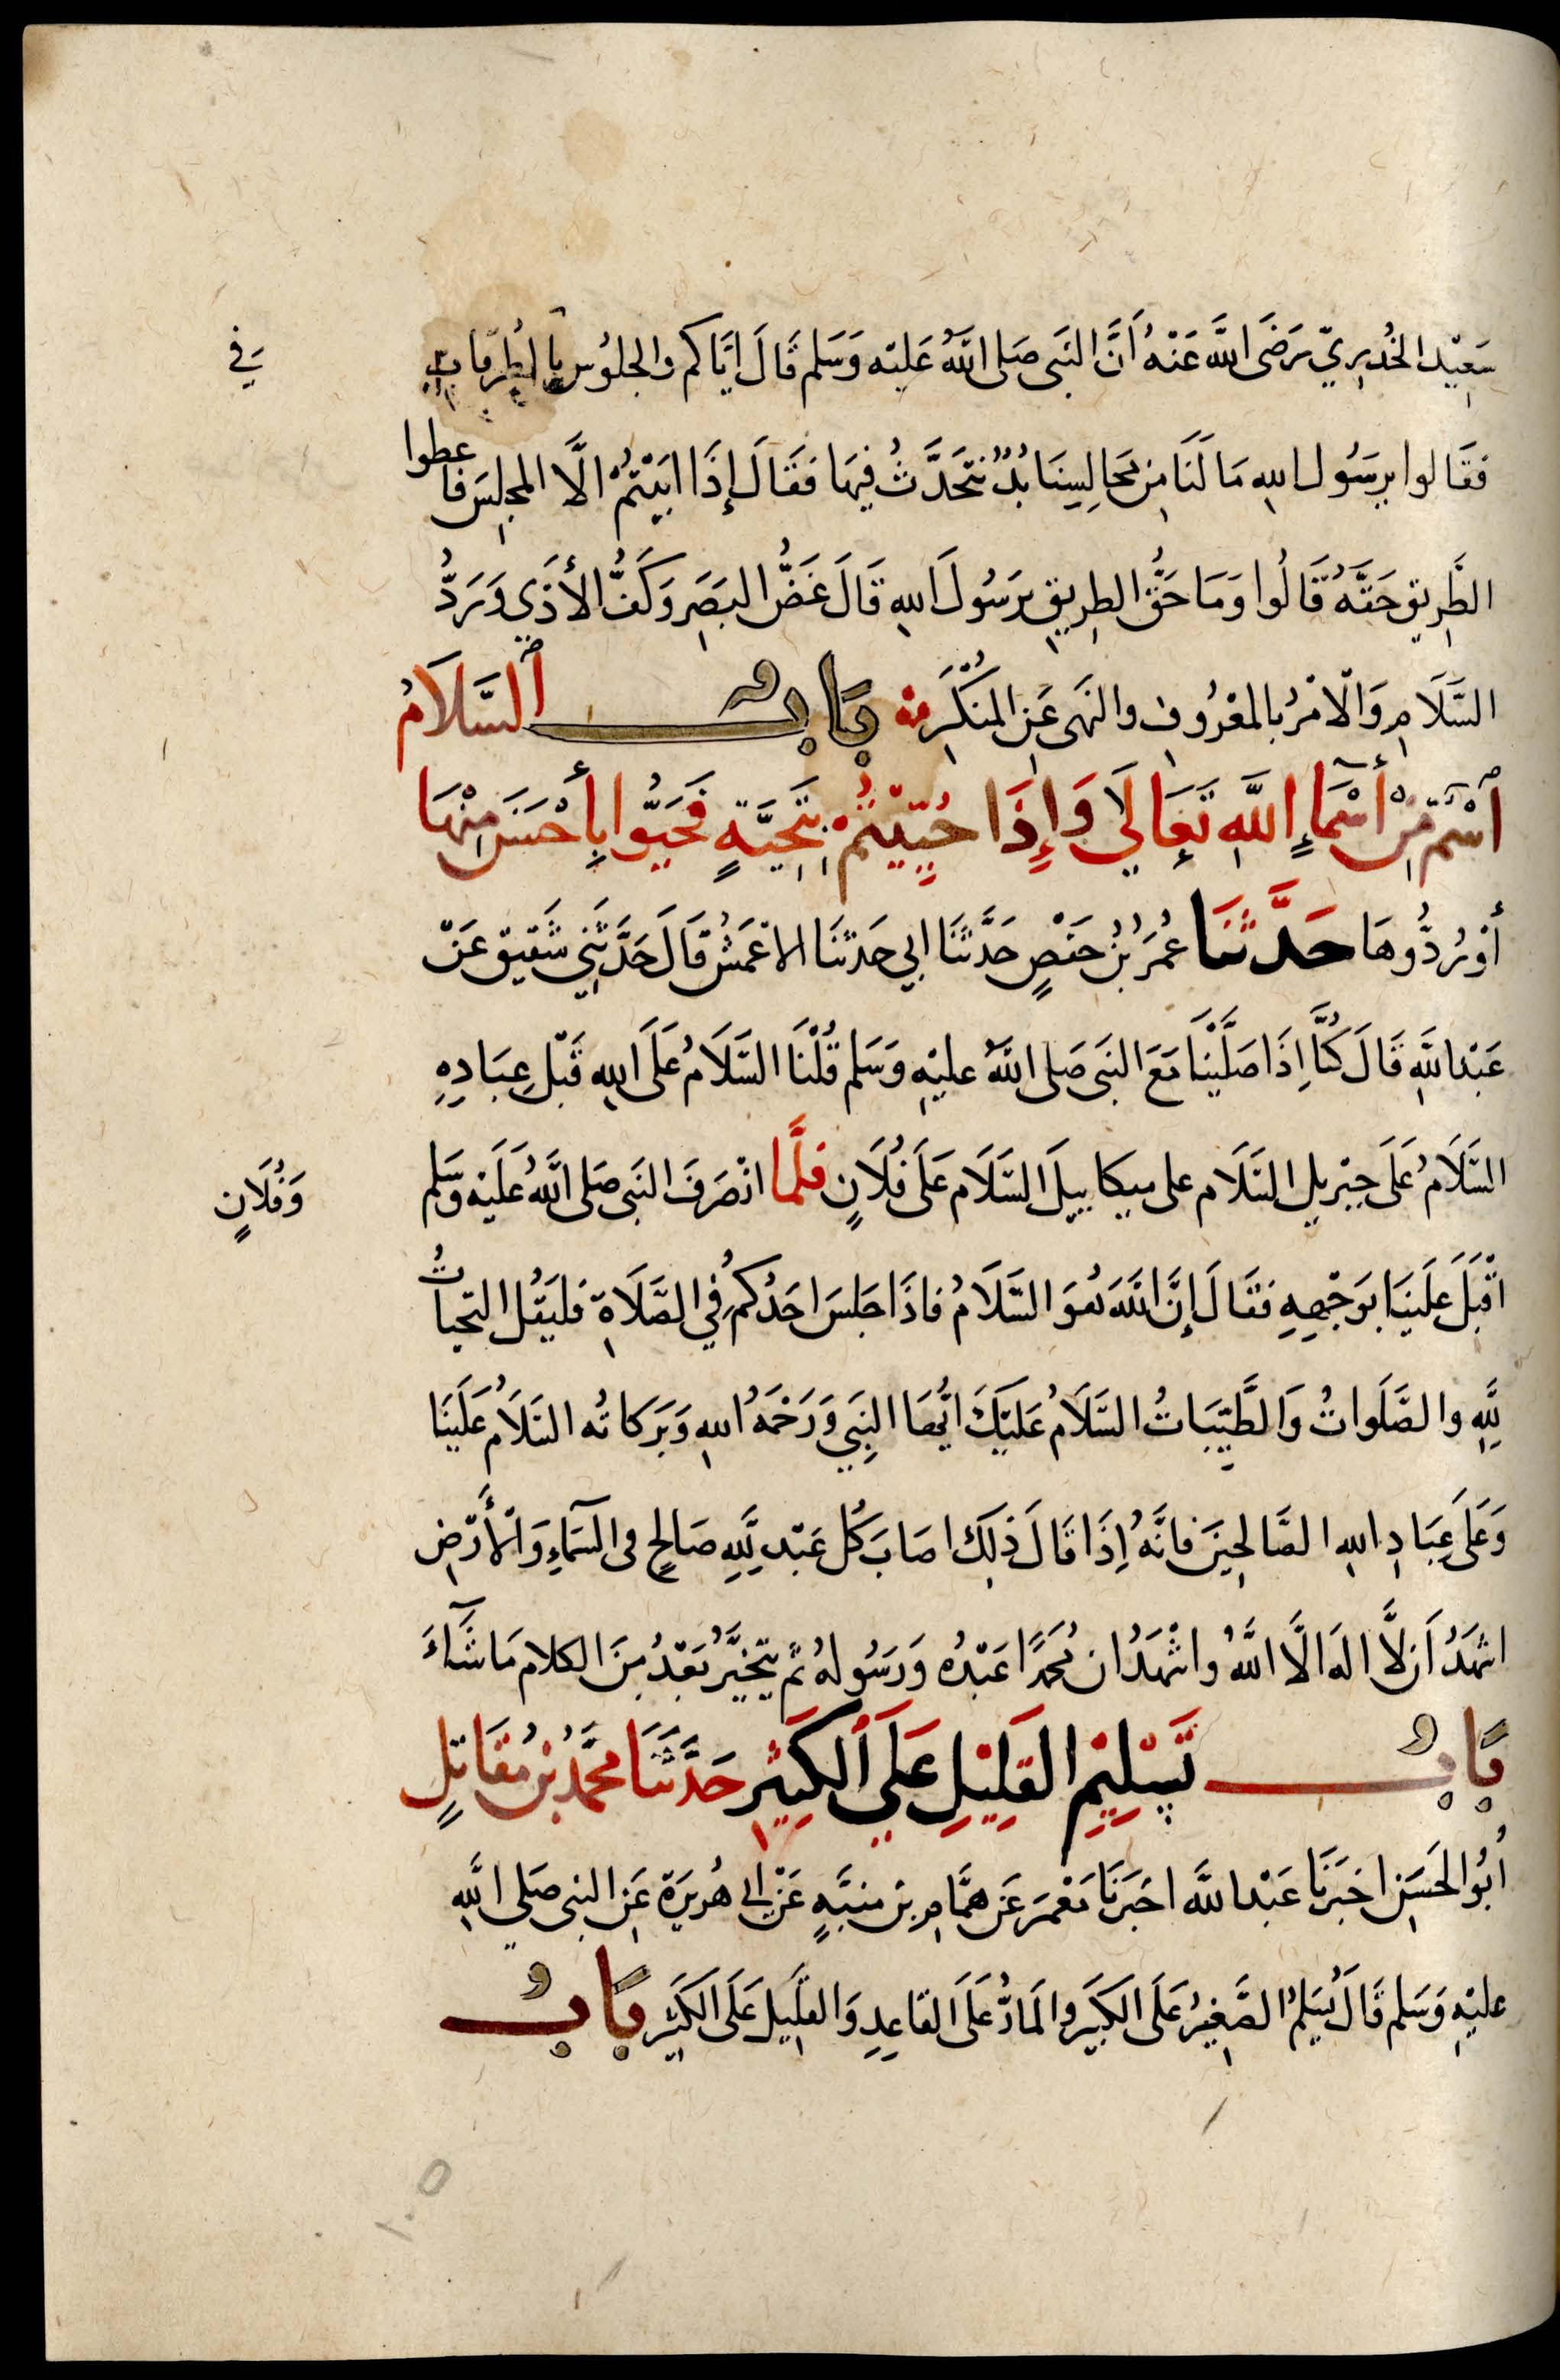 سَعِيْد الخُدرِيّ رَضَى اللَّه عَنْهُ اَنَّ النَبَى صَلى اللَّهُ عَليْه وَسَلم قَالَ ايَّاكم والجلوُس بالطرقاتِ
فقَالوا يرسُول اللهِ مَا لَنَا مِن مجَالِسِنَا بُدٌّ نتَحَدَّثُ فيهَا فقَالَ إذَا ابَيْتُمْ الَّا المجلِسَ فاعطوا
الطَّرِيق حَقَّهُ قَالُوا وَمَا حَقُّ الطرِيقِ يرَسُولَ اللهِ قَالَ غَضُّ البَصَرِ وَكَفُّ الأذَى وَرَدُّ
السَّلَامِ وَالْامْرُ بالمعْرُوفِ والنهَى عَنِ المُنكَرِ بَابٌ السَّلَامُ
اسْمٌ مِنْ أَسْمَاءِ اللَّهِ تَعَالَي وَإِذَا حُيِّيْتُمْ بِتَحِيَّةٍ فَحَيُّوا بِأَحْسَنَ مِنْهَا
أوْ رُدُّوهَا حَدَّثنَا عُمَرُ بْنُ حَفصٍ حَدَّثَنَا ابي حَدثنَا الاعْمَشُ قَالَ حَدَّثَنِي شَقيق عَنْ
عَبْد اللَّهِ قَالَ كُنَّا اِذَا صَلَّيْنَا مَعَ النبَى صَلى اللَّهُ عليْهِ وَسَلم قُلْنَا السَّلَامُ عَلَى اللهِ قَبْل عِبَادِهِ
السَّلَامُ عَلَى جِبْرِيل السَّلَام على ميكاييلَ السَّلَام عَلَى فُلَانٍ فلمَّا انْصَرَفَ النبَى صَلى اللَّهُ عَلَيْه وَسَلم
اقْبَلَ عَلَيْنَا بوَجْهِهِ فقَالَ إِنَّ اللَّهَ هُوَ السَّلَامُ فاذَا جَلسَ احَدُكُم فِي الصَّلَاةِ فليَقُل التحياتُ
لِلَّهِ والصَّلَواتُ وَالطَّيِّبَاتُ السَّلَامُ عَليْكَ ايُّهَا النبِي وَرَحْمَةُ اللهِ وَبَرَكاتُه السَّلَامُ عَلَيْنَا
وَعَلَى عِبَادِ اللهِ الصَّالِحِينَ فانَّهُ اِذَا قَالَ ذلِكَ اصَابَ كُل عَبْد لِلَّهِ صَالِحٍ فى السَّمَاءِ وَالْأَرْضِ
اشهَدُ اَن لَّا الهَ الَّا اللَّهُ واشْهَدُ ان مُحَمَّدًا عَبْدُه وَرَسُولهُ ثم يَتخيَّرُ بَعْدُ مِنَ الكلام مَا شَآءَ
بَابٌ تَسْلِيْمِ القَلِيْلِ عَلَي الكَثِيْرِ حَدَّثَنَا محمَّدُ بْنُ مُقَاتِلٍ
اَبُو الحَسَنِ اخبَرَنَا عَبْد اللَّه اخبَرَنَا مَعْمَر عَن همَّامِ بْن منبِّهٍ عَنْ ابي هُرَيرَة عَنِ النبي صَلى اللَّهِ
عليْهِ وَسَلم قَالَ يُسَلِمُ الصَّغِيرُ عَلَى الكَبِيَر والمَارُّ عَلَى القاعِدِ وَالقَلِيل عَلَى الكَثِيِر بَابٌ
فِي
وَفُلَانٍ
١٠٥